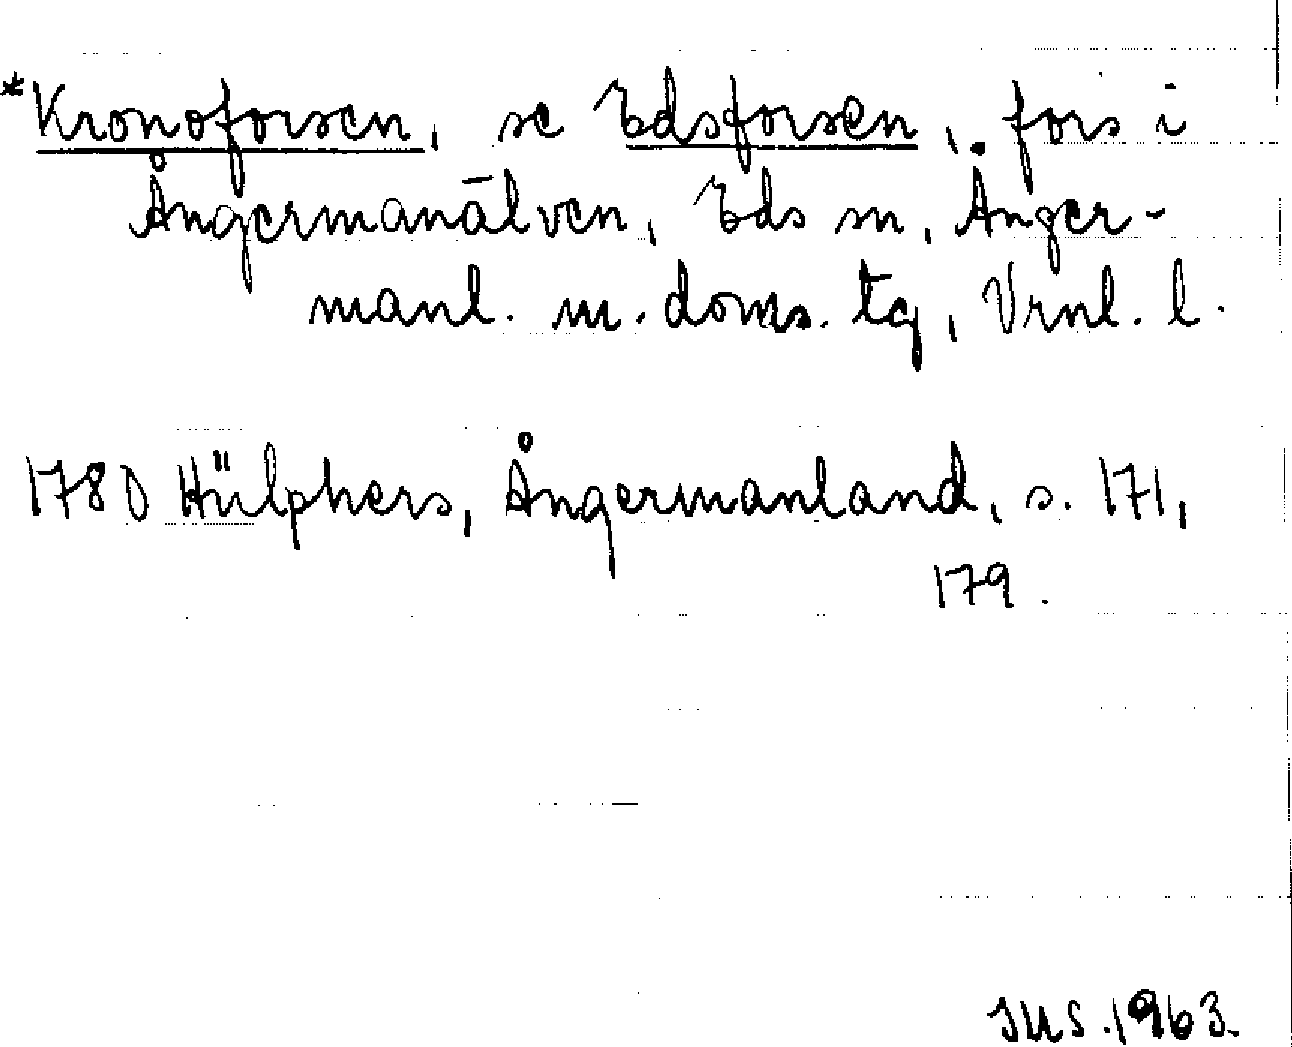 *Kronoforsen, se Edsforsen, fors i
Ångermanälven, Eds sn, Ånger-
manl. m. doms. tg, Vrnl. l.
1780 Hülphers, Ångermanland, s. 171,
179.
JUS.1963.